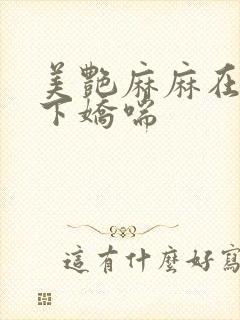 美艷麻麻在
下嬌喘
這有什麼好寫